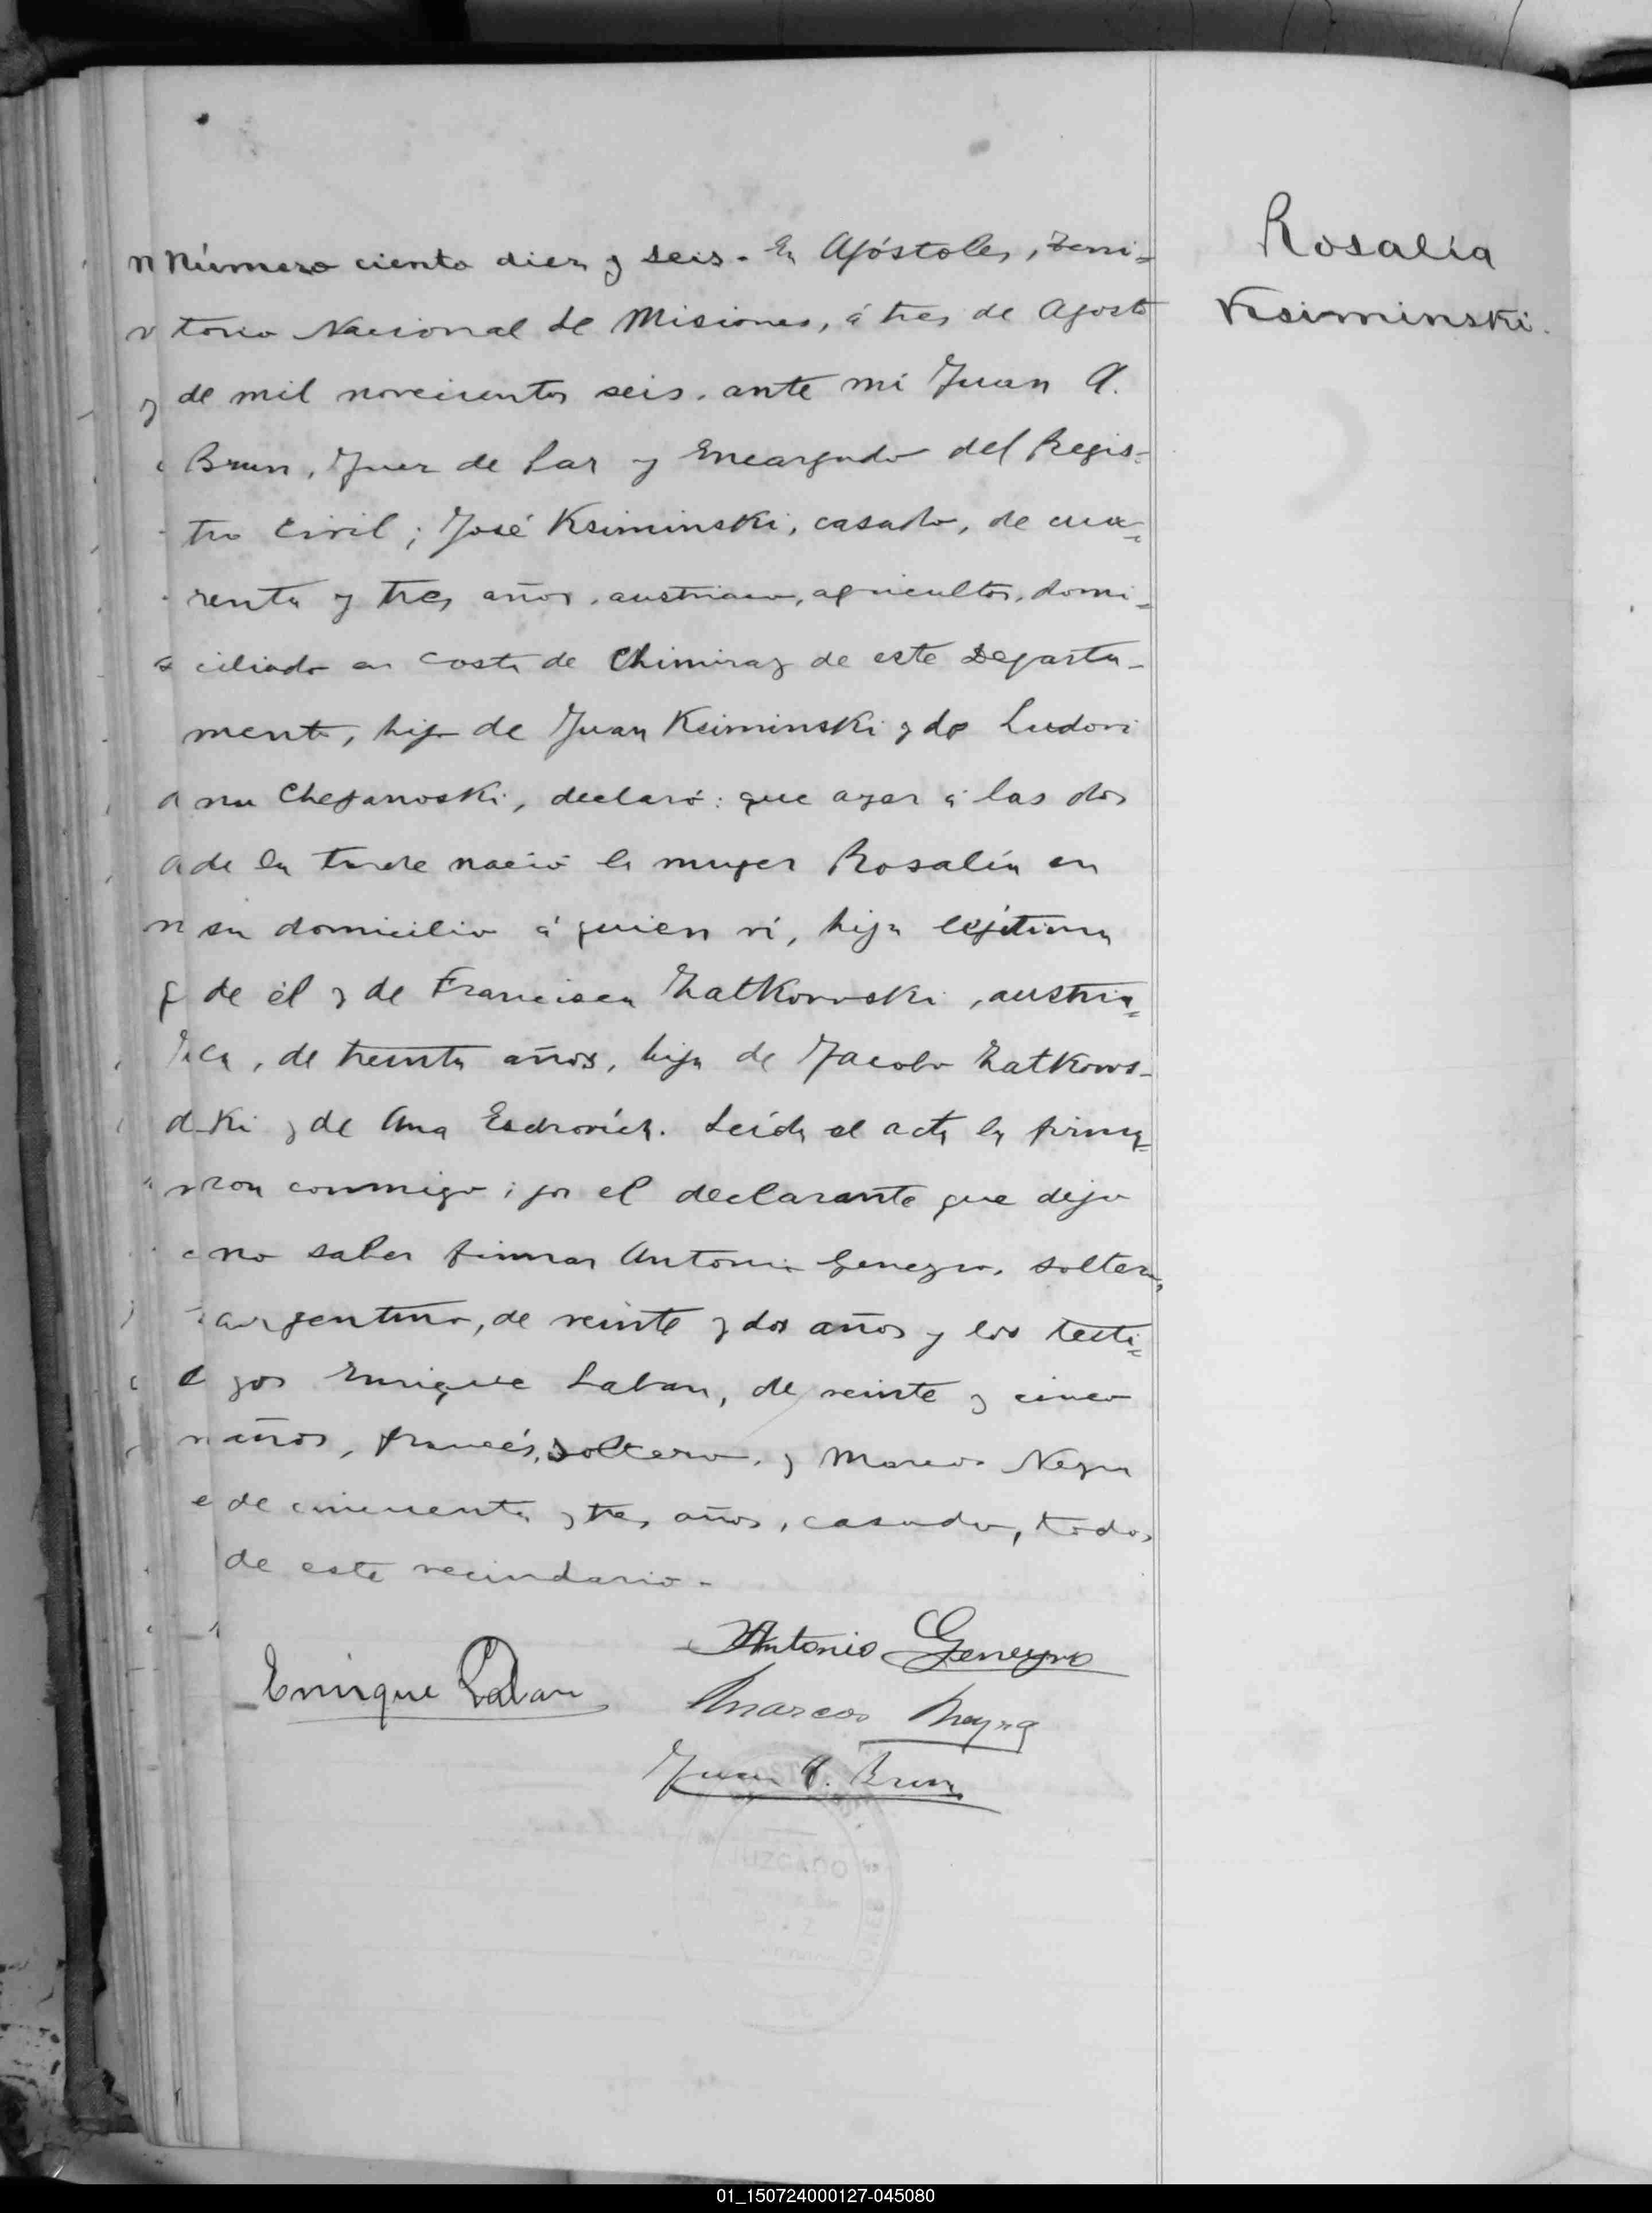 Rosalía
Ksiminski.
Número ciento diez y seis. En Apóstoles, Terri=
torio Nacional de Misiones, á tres de Agosto
de mil novecientos seis, ante mi Juan A.
Brun, Juez de Paz y Encargado del Regis=
tro Civil; José Ksiminski, casado, de cua=
renta y tres años, austriaco, agricultor, domi=
ciliado en costa de Chimiray de este Departa-
mento, hijo de Juan Ksiminski y de Ludovi
na Chepanoski, declaró: que ayer á las dos
de la tarde nació la mujer Rosalía en
su domicilio á quien ví, hija lejítima
de él y de Francisca Zatkowski, austria=
ca, de treinta años, hija de Jacobo Zatkows-
ki y de Ana. Leída el acta la firma=
ron conmigo; por el declarante que dijo
no saber firmar Antonio Geneyro, soltero,
argentino, de veinte y dos años y los testi=
gos Enrique Laban, de veinte y cinco
años, francés, soltero, y Marcos Neyra
de cincuenta y tres años, casado, todos
de este vecindario.
Antonio Geneyro
Enrique Laban
Marcos Neyra
Juan A. Brun
JUZGADO
01_150724000127-045080